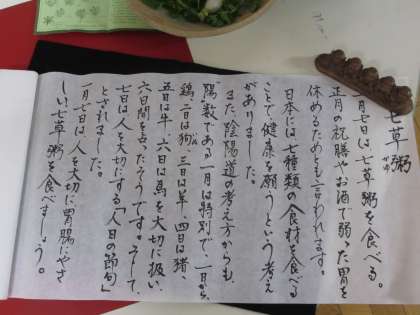 七草粥
がゆ
一月七日は七草粥を食べる。
正月の祝膳やお酒で弱った胃を
休めるためとも言われます。
日本には七種類の食材を食べる
ことで、健康を願うという考え
がありました。
また、陰陽道の考え方からも、
"陽"数である一月は特別で、一日から
鶏、二日は狗、三日は羊、四日は猪、
五日は牛、六日は馬を大切に扱い、
六日間を占ったそうです。そして、
七日は人を大切にする「人日の節句」
とされました。
一月七日は、人を大切に胃腸にやさ
しい七草粥を食べましょう。